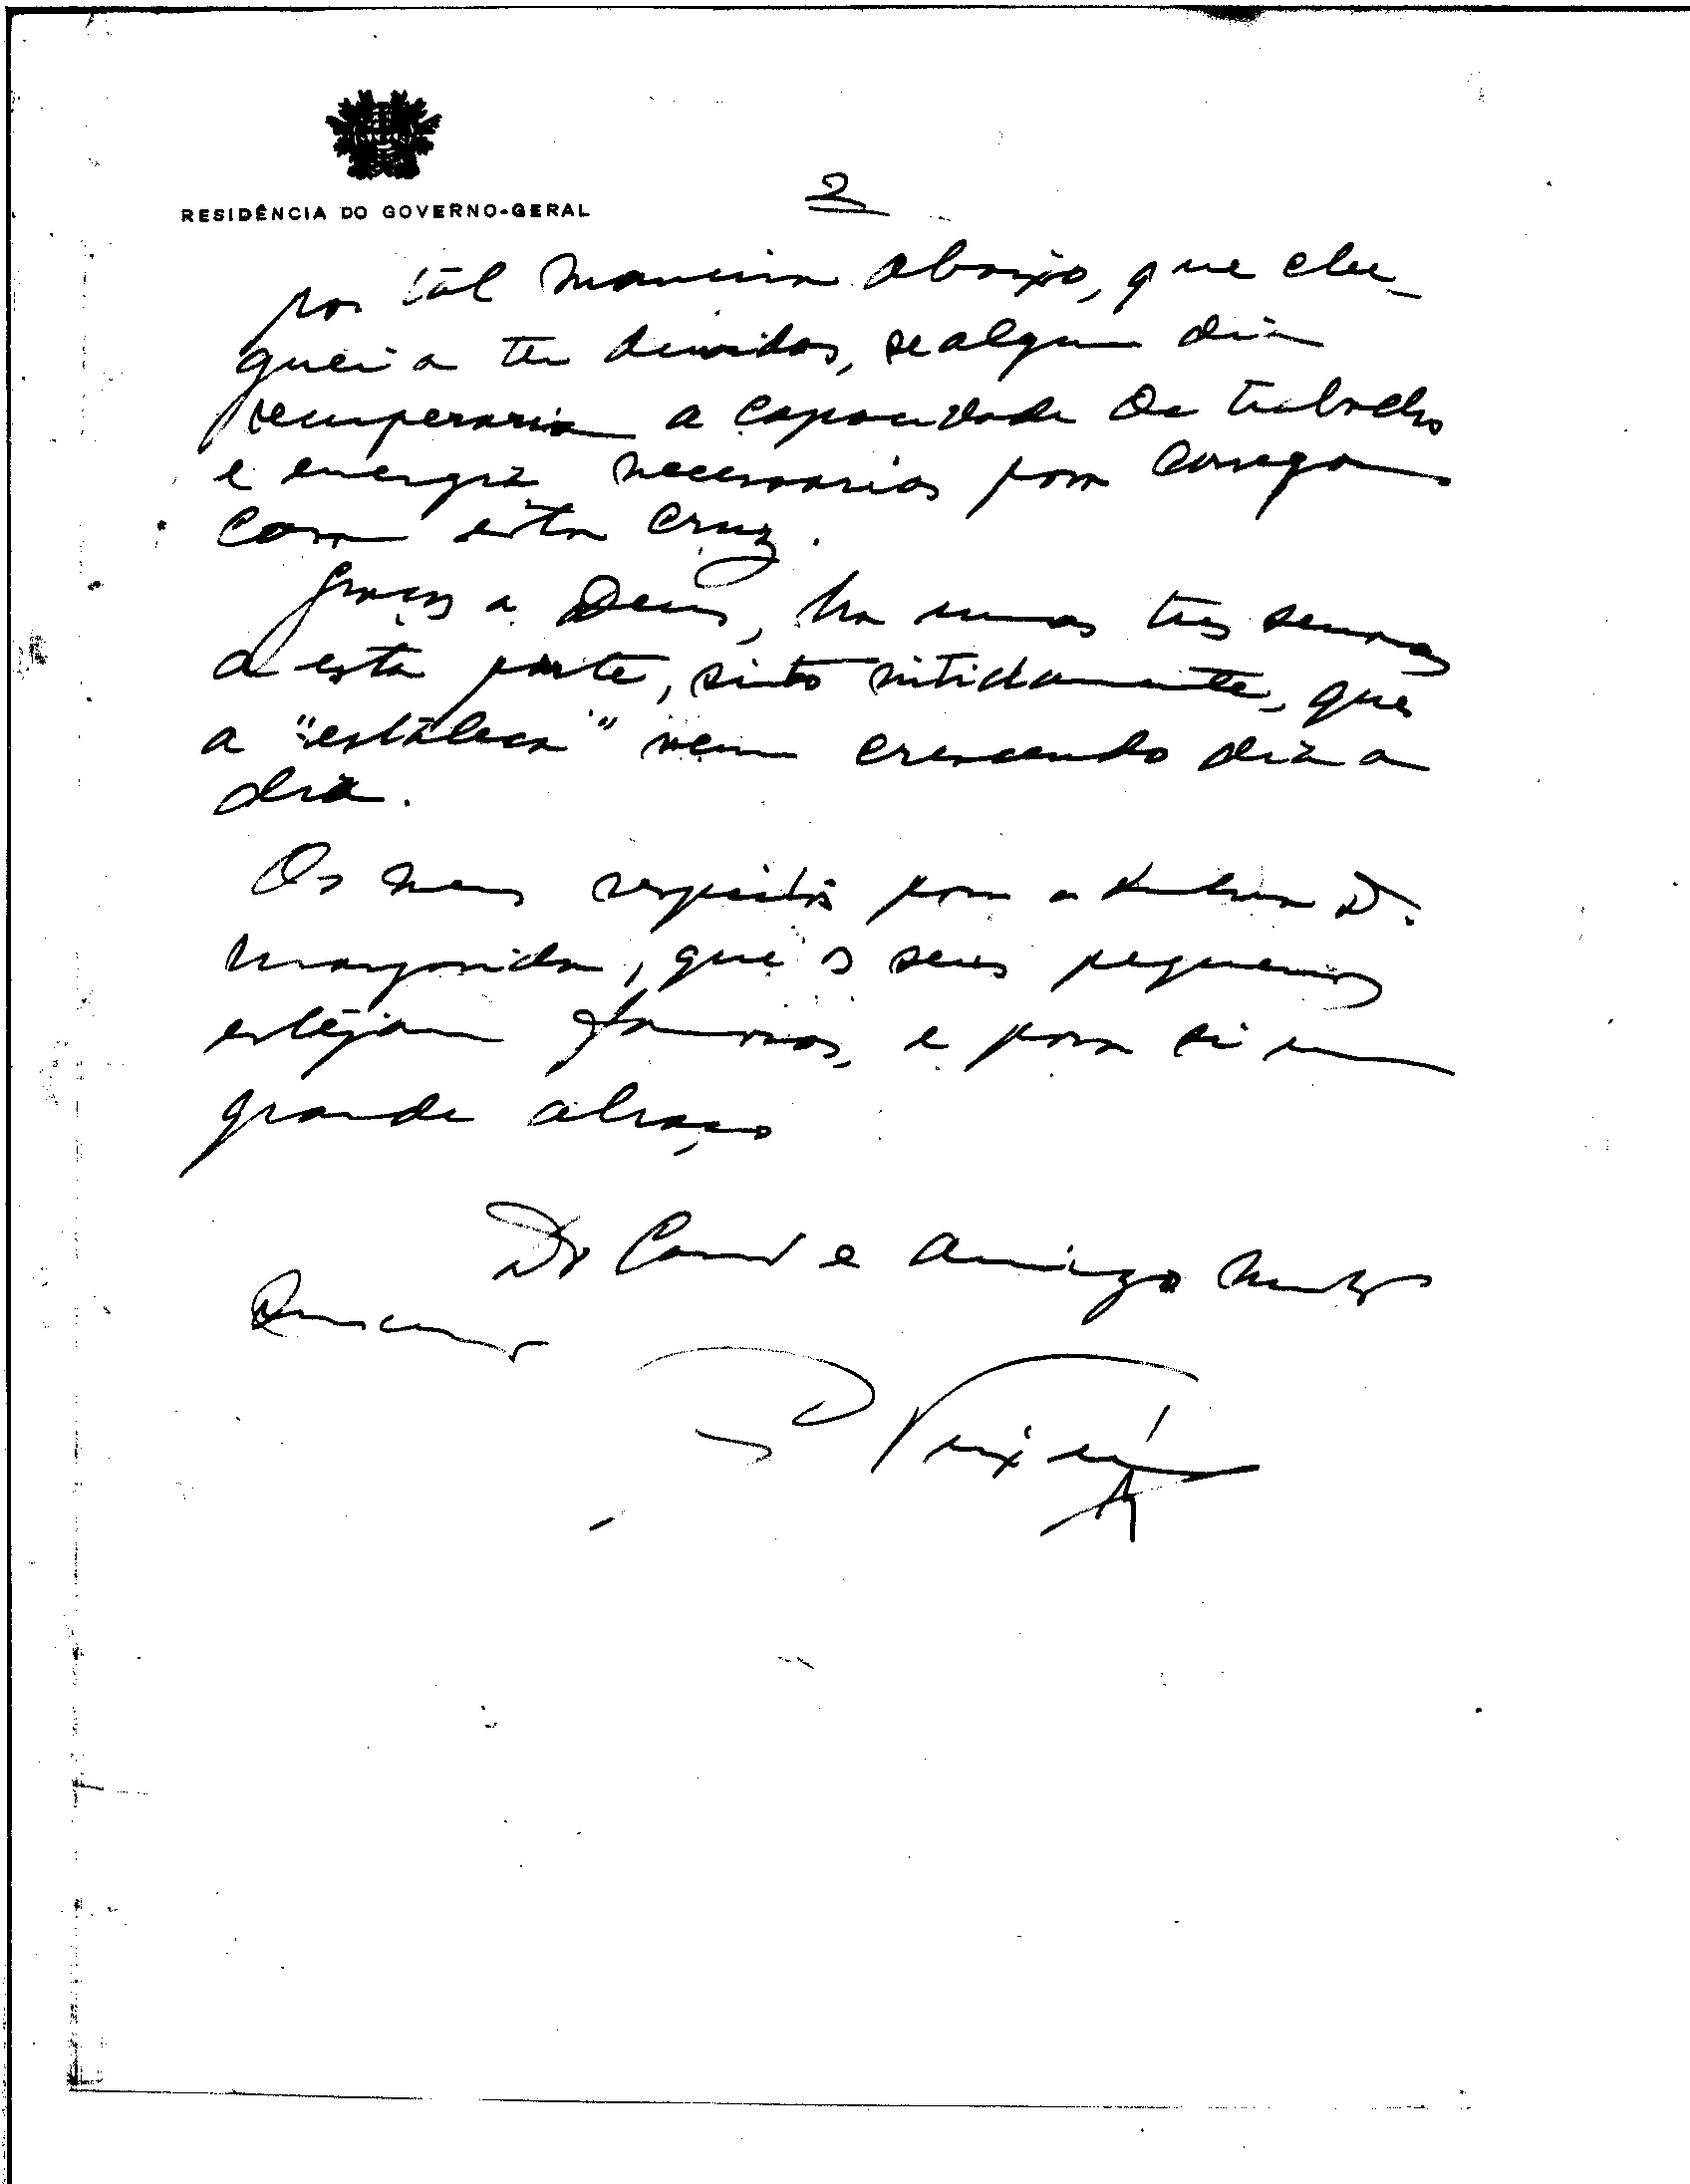 RESIDÊNCIA DO GOVERNO-GERAL
2
por tal maneira abaixo, que che-
guei a ter duvidas, se algum dia
recuperaria a capacidade de trabalho
e energia necessarias para carregar
com esta cruz.
Graças a Deus, ha umas tres semanas
a esta parte, sinto nitidamente, que
a "estaleca" vem crescendo dia a
dia.
Os meus respeitos para a Senhora D.
Margarida, que os seus pequenos
estejam famosos, e para si um
grande abraço
Do Camd e amigo muito